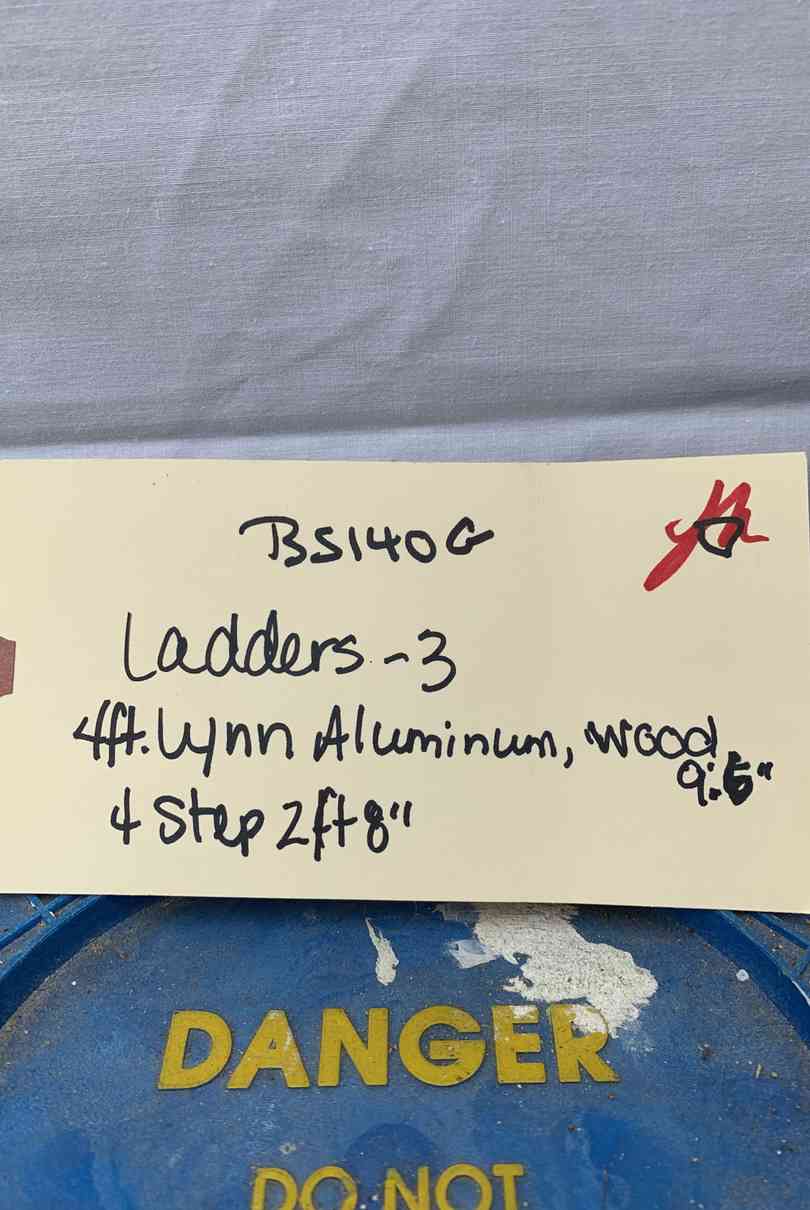 BS140G
Ladders - 3
4ft. Lynn Aluminum, wood
9'.6"
4 Step 2ft 8"
DANGER
DO NOT